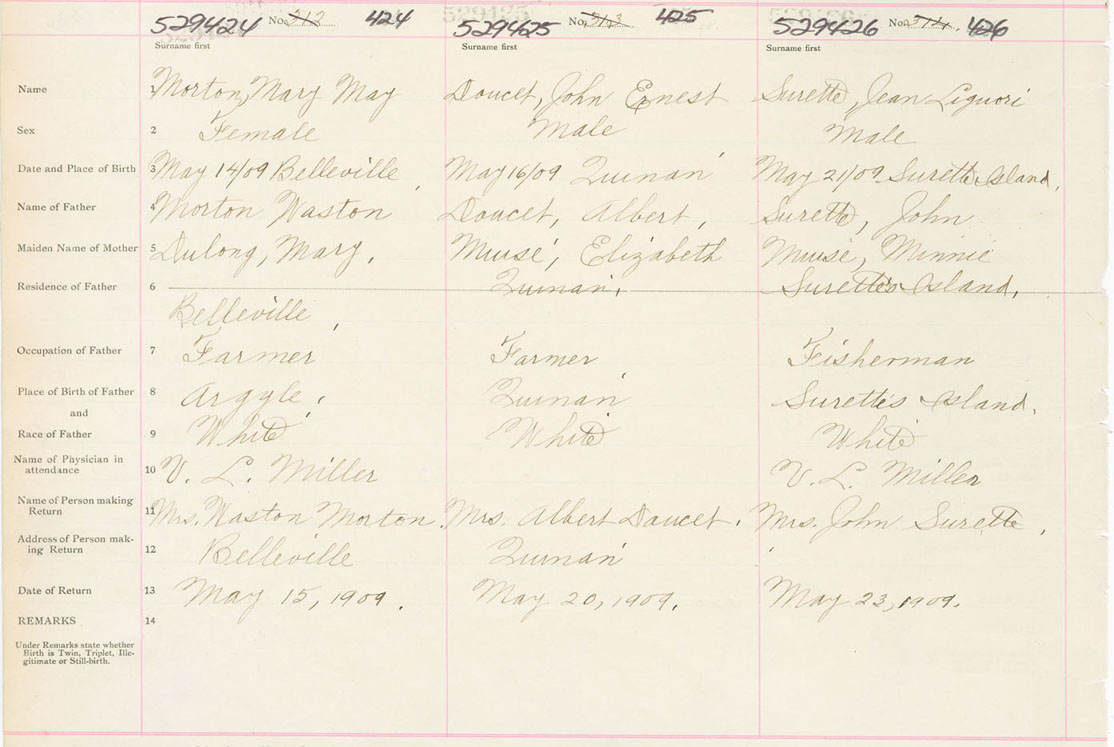 529424 No. 312 424 529425 No. 313 425 529426 No. 314. 426
Surname first Surname first Surname first
Name 1 Morton, Mary May Doucet, John Ernest Surette, Jean Liguori
Sex 2 Female Male Male
Date and Place of Birth 3 May 14/09 Belleville, May 16/09 Quinan May 21/09 Surette Island,
Name of Father 4 Morton Waston Doucet, Albert, Surette, John
Maiden Name of Mother 5 Dulong, Mary, Muise, Elizabeth Muise, Minnie
Residence of Father 6 Quinan, Surette's Island,
Belleville,
Occupation of Father 7 Farmer Farmer Fisherman
Place of Birth of Father 8 Argyle, Quinan Surette's Island,
and
Race of Father 9 White White White
Name of Physician in
attendance 10 V. L. Miller V. L. Miller
Name of Person making
Return 11 Mrs. Waston Morton. Mrs. Albert Doucet. Mrs. John Surette,
Address of Person mak-
ing Return 12 Belleville Quinan
Date of Return 13 May 15, 1909. May 20, 1909. May 23, 1909.
REMARKS 14
Under Remarks state whether
Birth is Twin, Triplet, Ille-
gitimate or Still-birth.